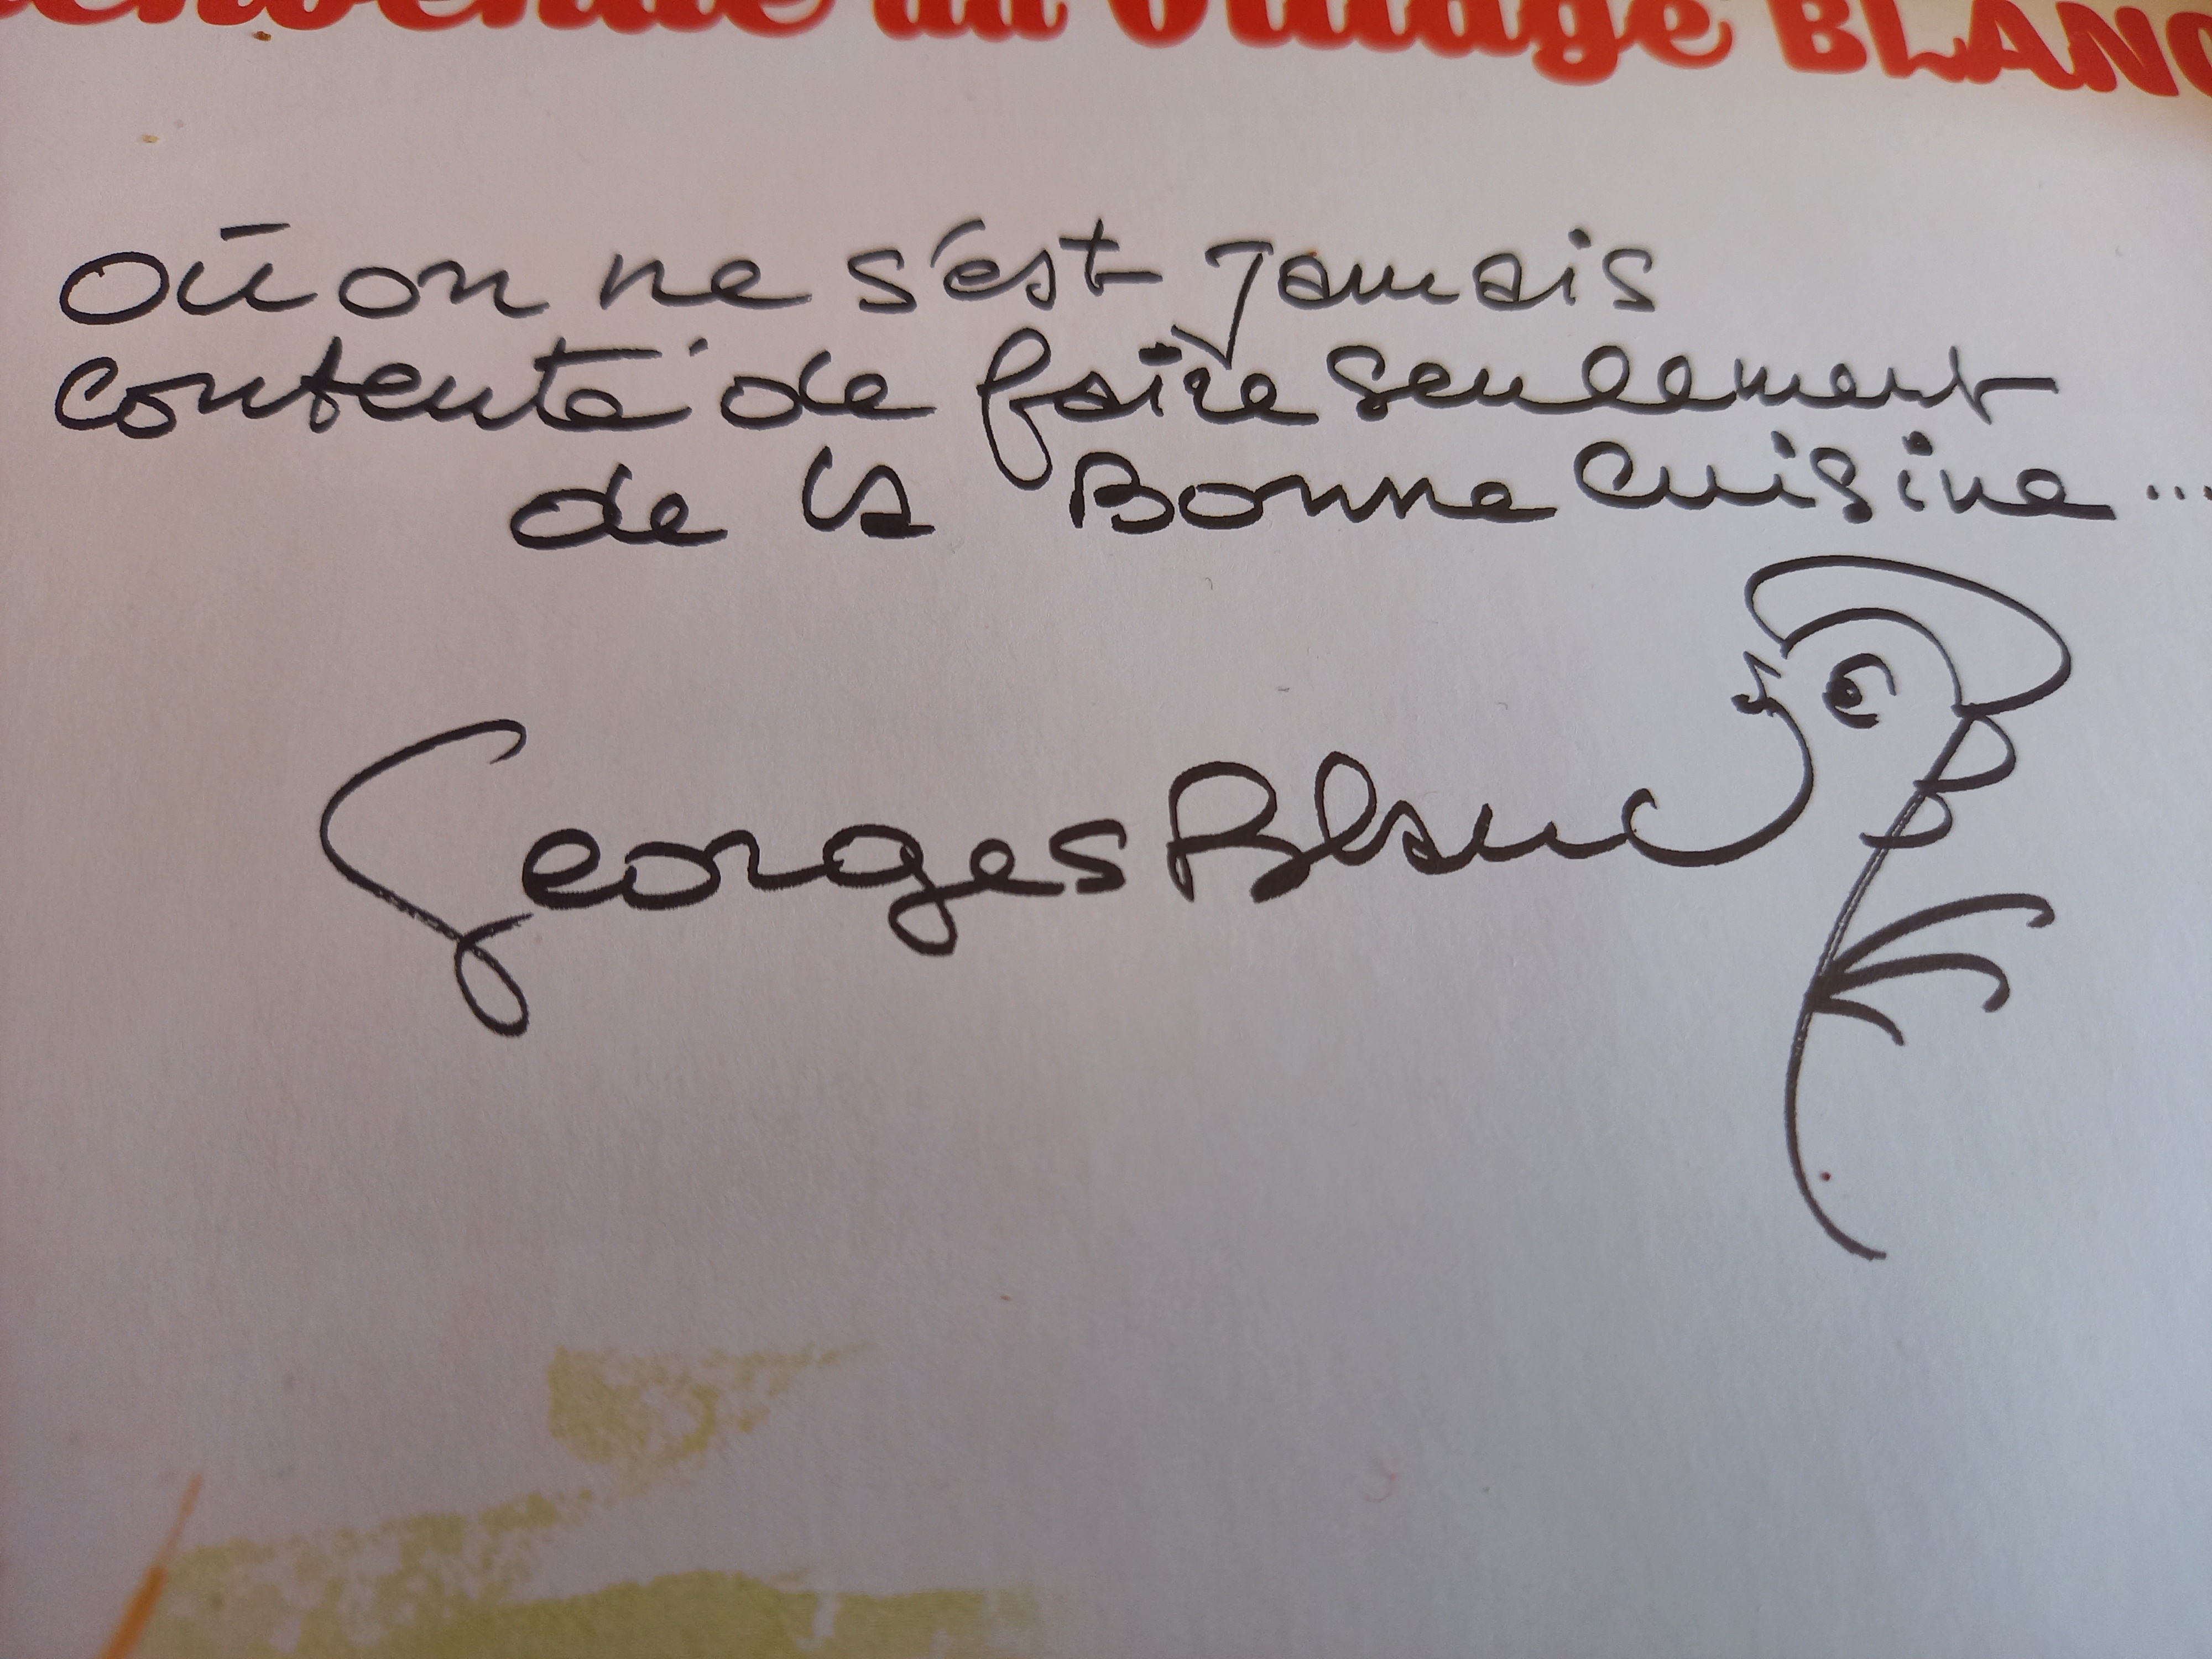 Bienvenue au village BLANC
Où on ne s'est jamais
contenté de faire seulement
de la Bonne cuisine...
Georges Blanc